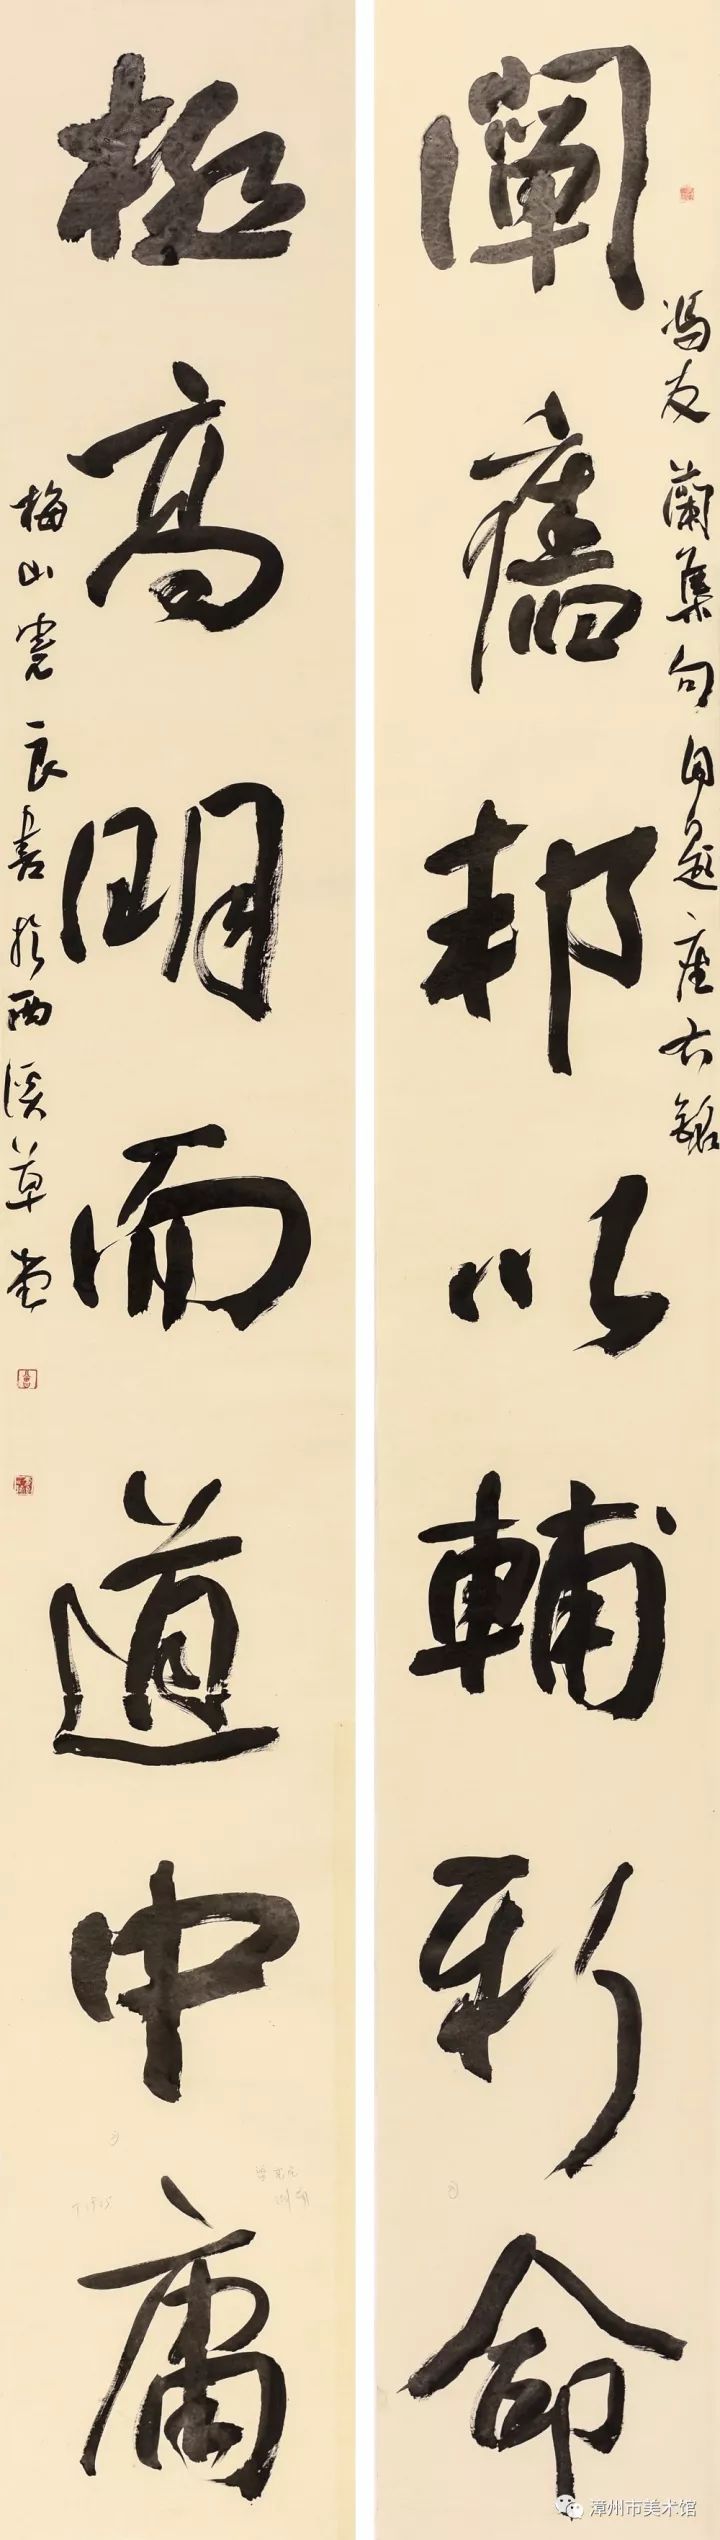 闡舊邦以輔新命
馮友蘭集句自題座右銘
極高明而道中庸
梅山憲良書於西溪草堂
漳州市美术馆